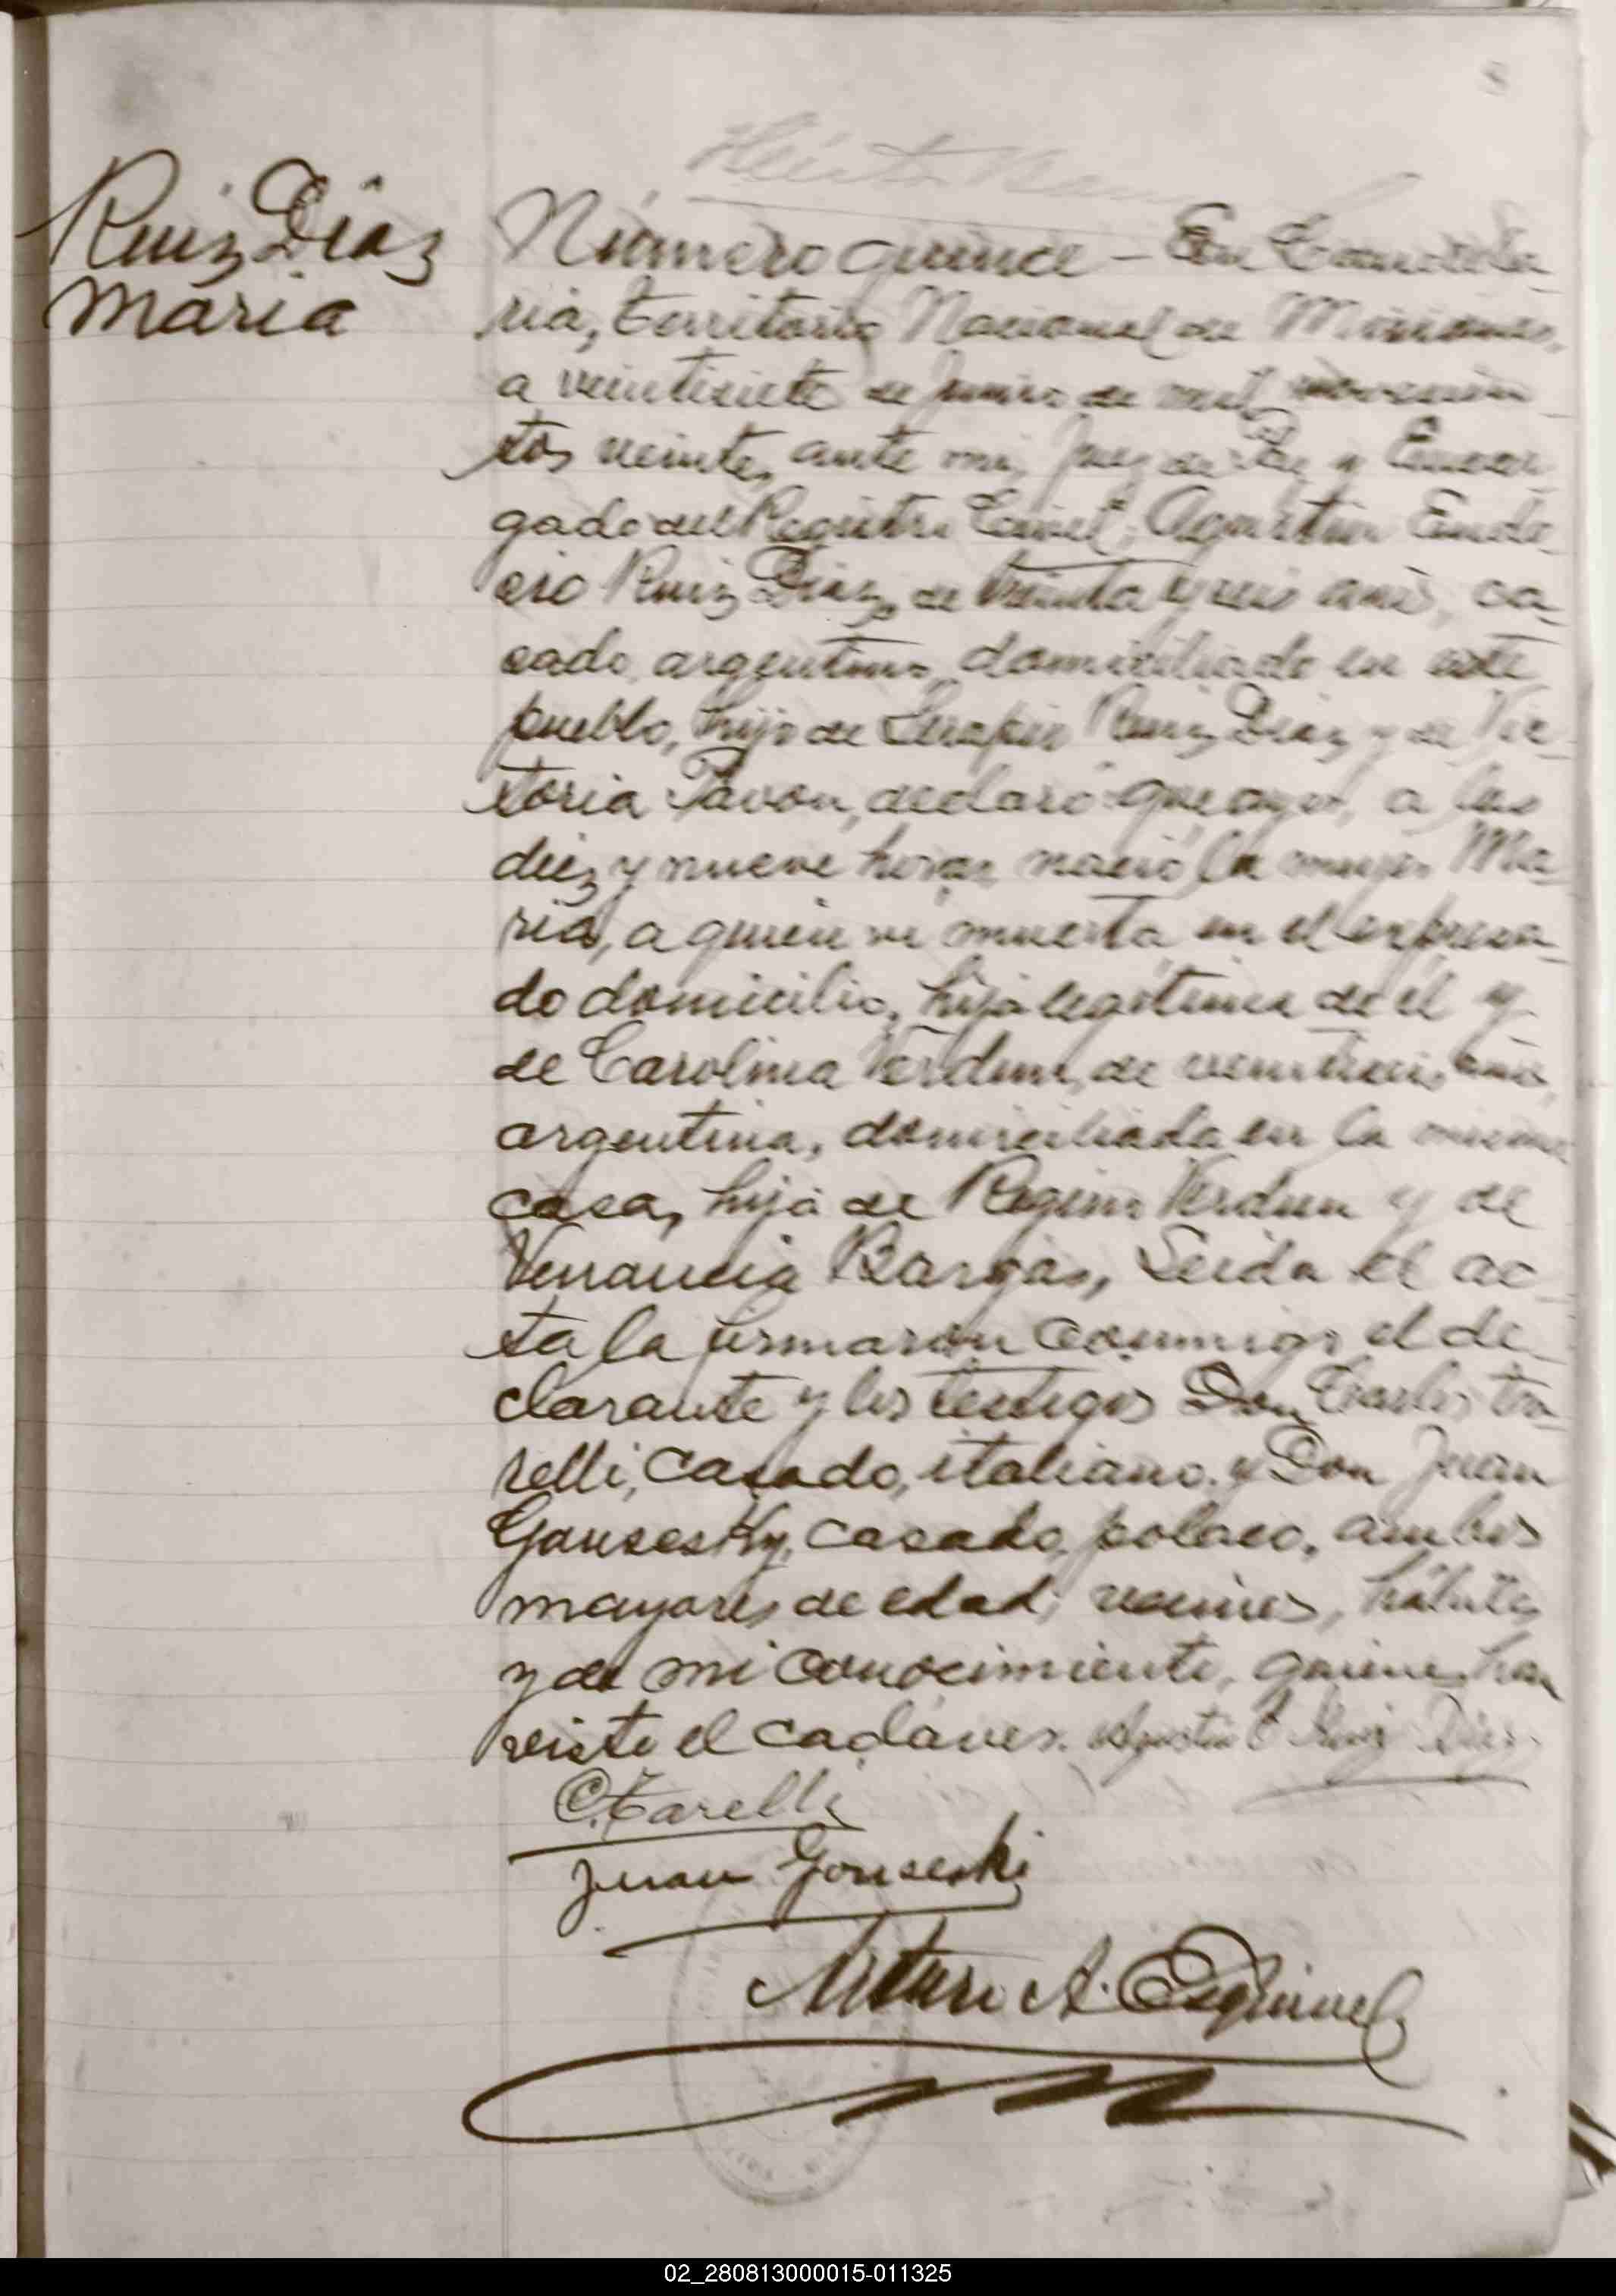 8
Ruiz Diaz
Maria
Número quince - En Candela-
ria, territorio Nacional de Misiones,
a veintisiete de Junio de mil novecien-
tos veinte, ante mi, Juez de Paz y Encar-
gado del Registro Civil, Agustin Eude-
sio Ruiz Diaz, de treinta y seis años, ca-
sado, argentino, domiciliado en este
pueblo, hijo de Serapio Ruiz Diaz y de Vic-
toria Pavon, declaró que ayer, a las
diez y nueve horas nació la mujer Ma-
ria, a quien vi muerta en el expresa-
do domicilio, hija legítima de él y
de Carolina Verdun, de veintiseis años,
argentina, domiciliada en la misma
casa, hija de Regino Verdun y de
Venancia Bargas, Leida el ac-
ta la firmaron conmigo el de-
clarante y los testigos Don Carlos ta-
relli, casado, italiano y Don Juan
Gonseski, casado, polaco, ambos
mayores de edad, vecinos, hábiles
y de mi conocimiento, quienes han
visto el cadáver. Agustin E Ruiz Diaz
C. Tarelli
Juan Gonseski
Arturo A. Esquivel
02_280813000015-011325